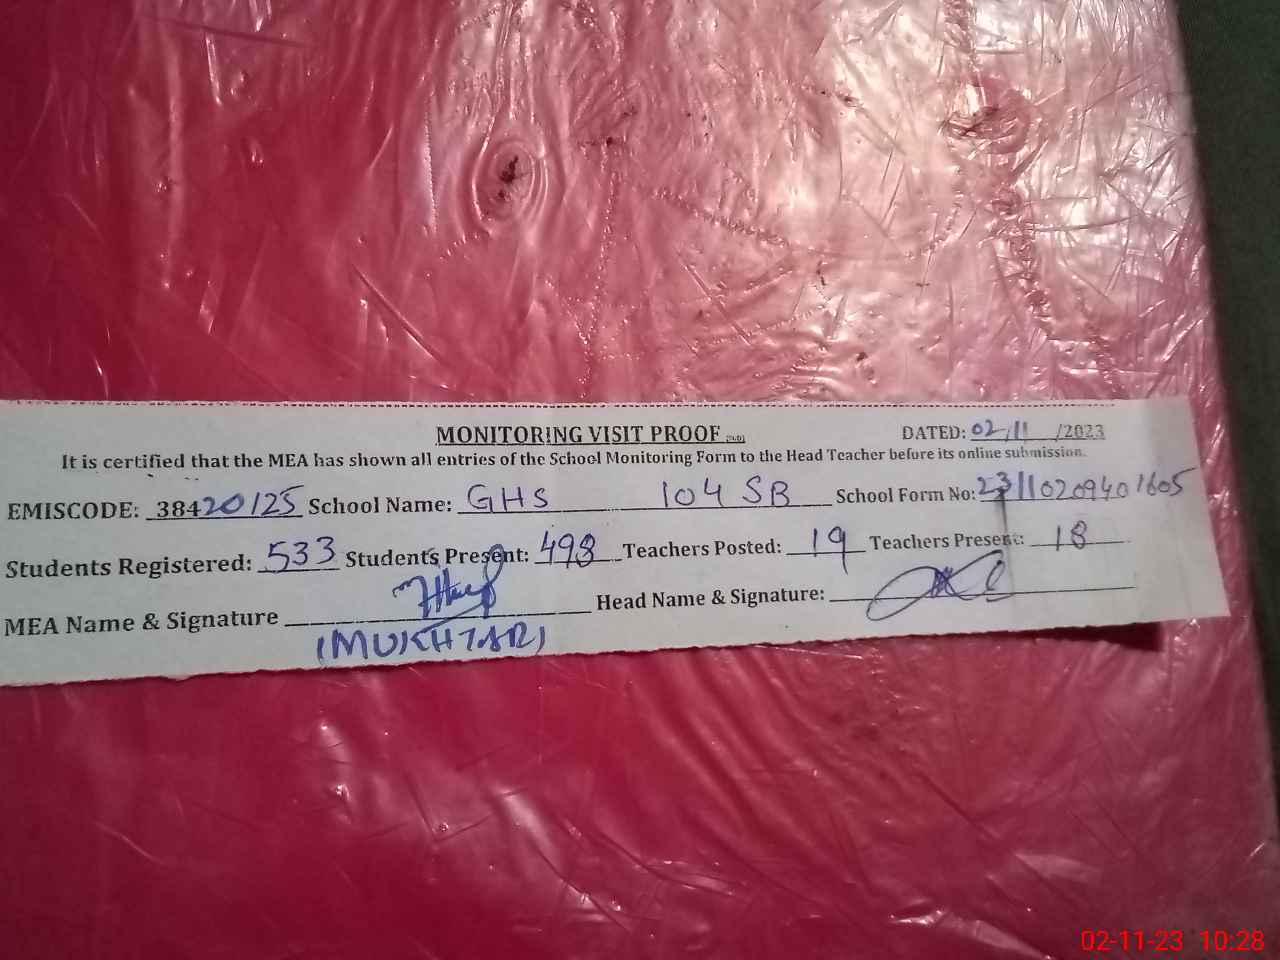 MONITORING VISIT PROOF DATED: 02/11/2023
It is certified that the MEA has shown all entries of the School Monitoring Form to the Head Teacher before its online submission.
EMISCODE: 38420125 School Name: GHS 104 SB School Form No: 23110209401605
Students Registered: 533 Students Present: 498 Teachers Posted: 19 Teachers Present: 18
MEA Name & Signature Head Name & Signature:
(MUKHTAR)
02-11-23 10:28